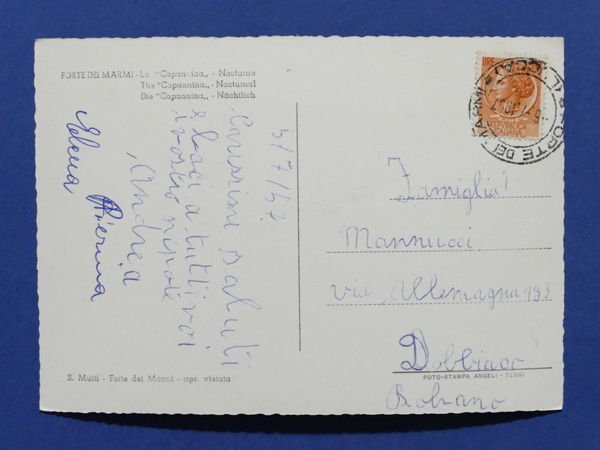 FORTE DEI MARMI - La "Capannina„ - Nocturno
The "Capannina„ - Nocturnal
Die "Capannina„ - Nächtlich
5/7/57
Carissimi saluti
e baci a tutti voi
vostro nipote
Andrea
Elena
Famiglia
Mannucci
via, Allemagna 193
Dobbiaco
Bolzano
S. Mutti - Forte dei Marmi - ripr. vietata
FOTO-STAMPA ANGELI - TERNI
FORTE DEI MARMI
(LUCCA)